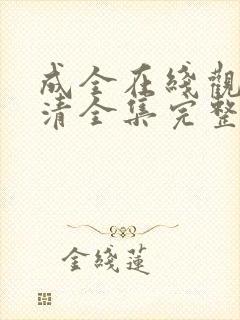 成全在綫觀
清全集完整
金綫蓮